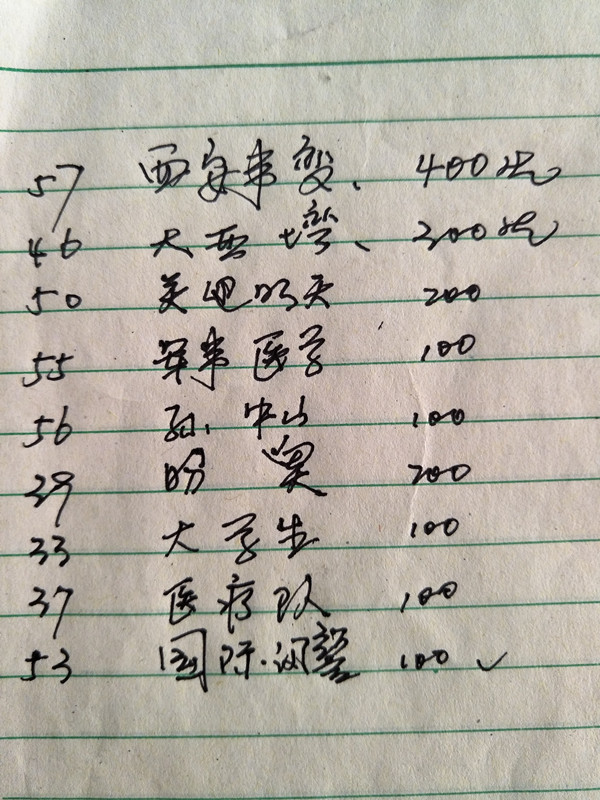 57 西安事变、400元
46 大亚湾、200元
50 关心明天 200
55 军事医学 100
56 孙中山 100
39 盼 奥 200
33 大学生 100
37 医疗队 100
53 国际 100 ✓